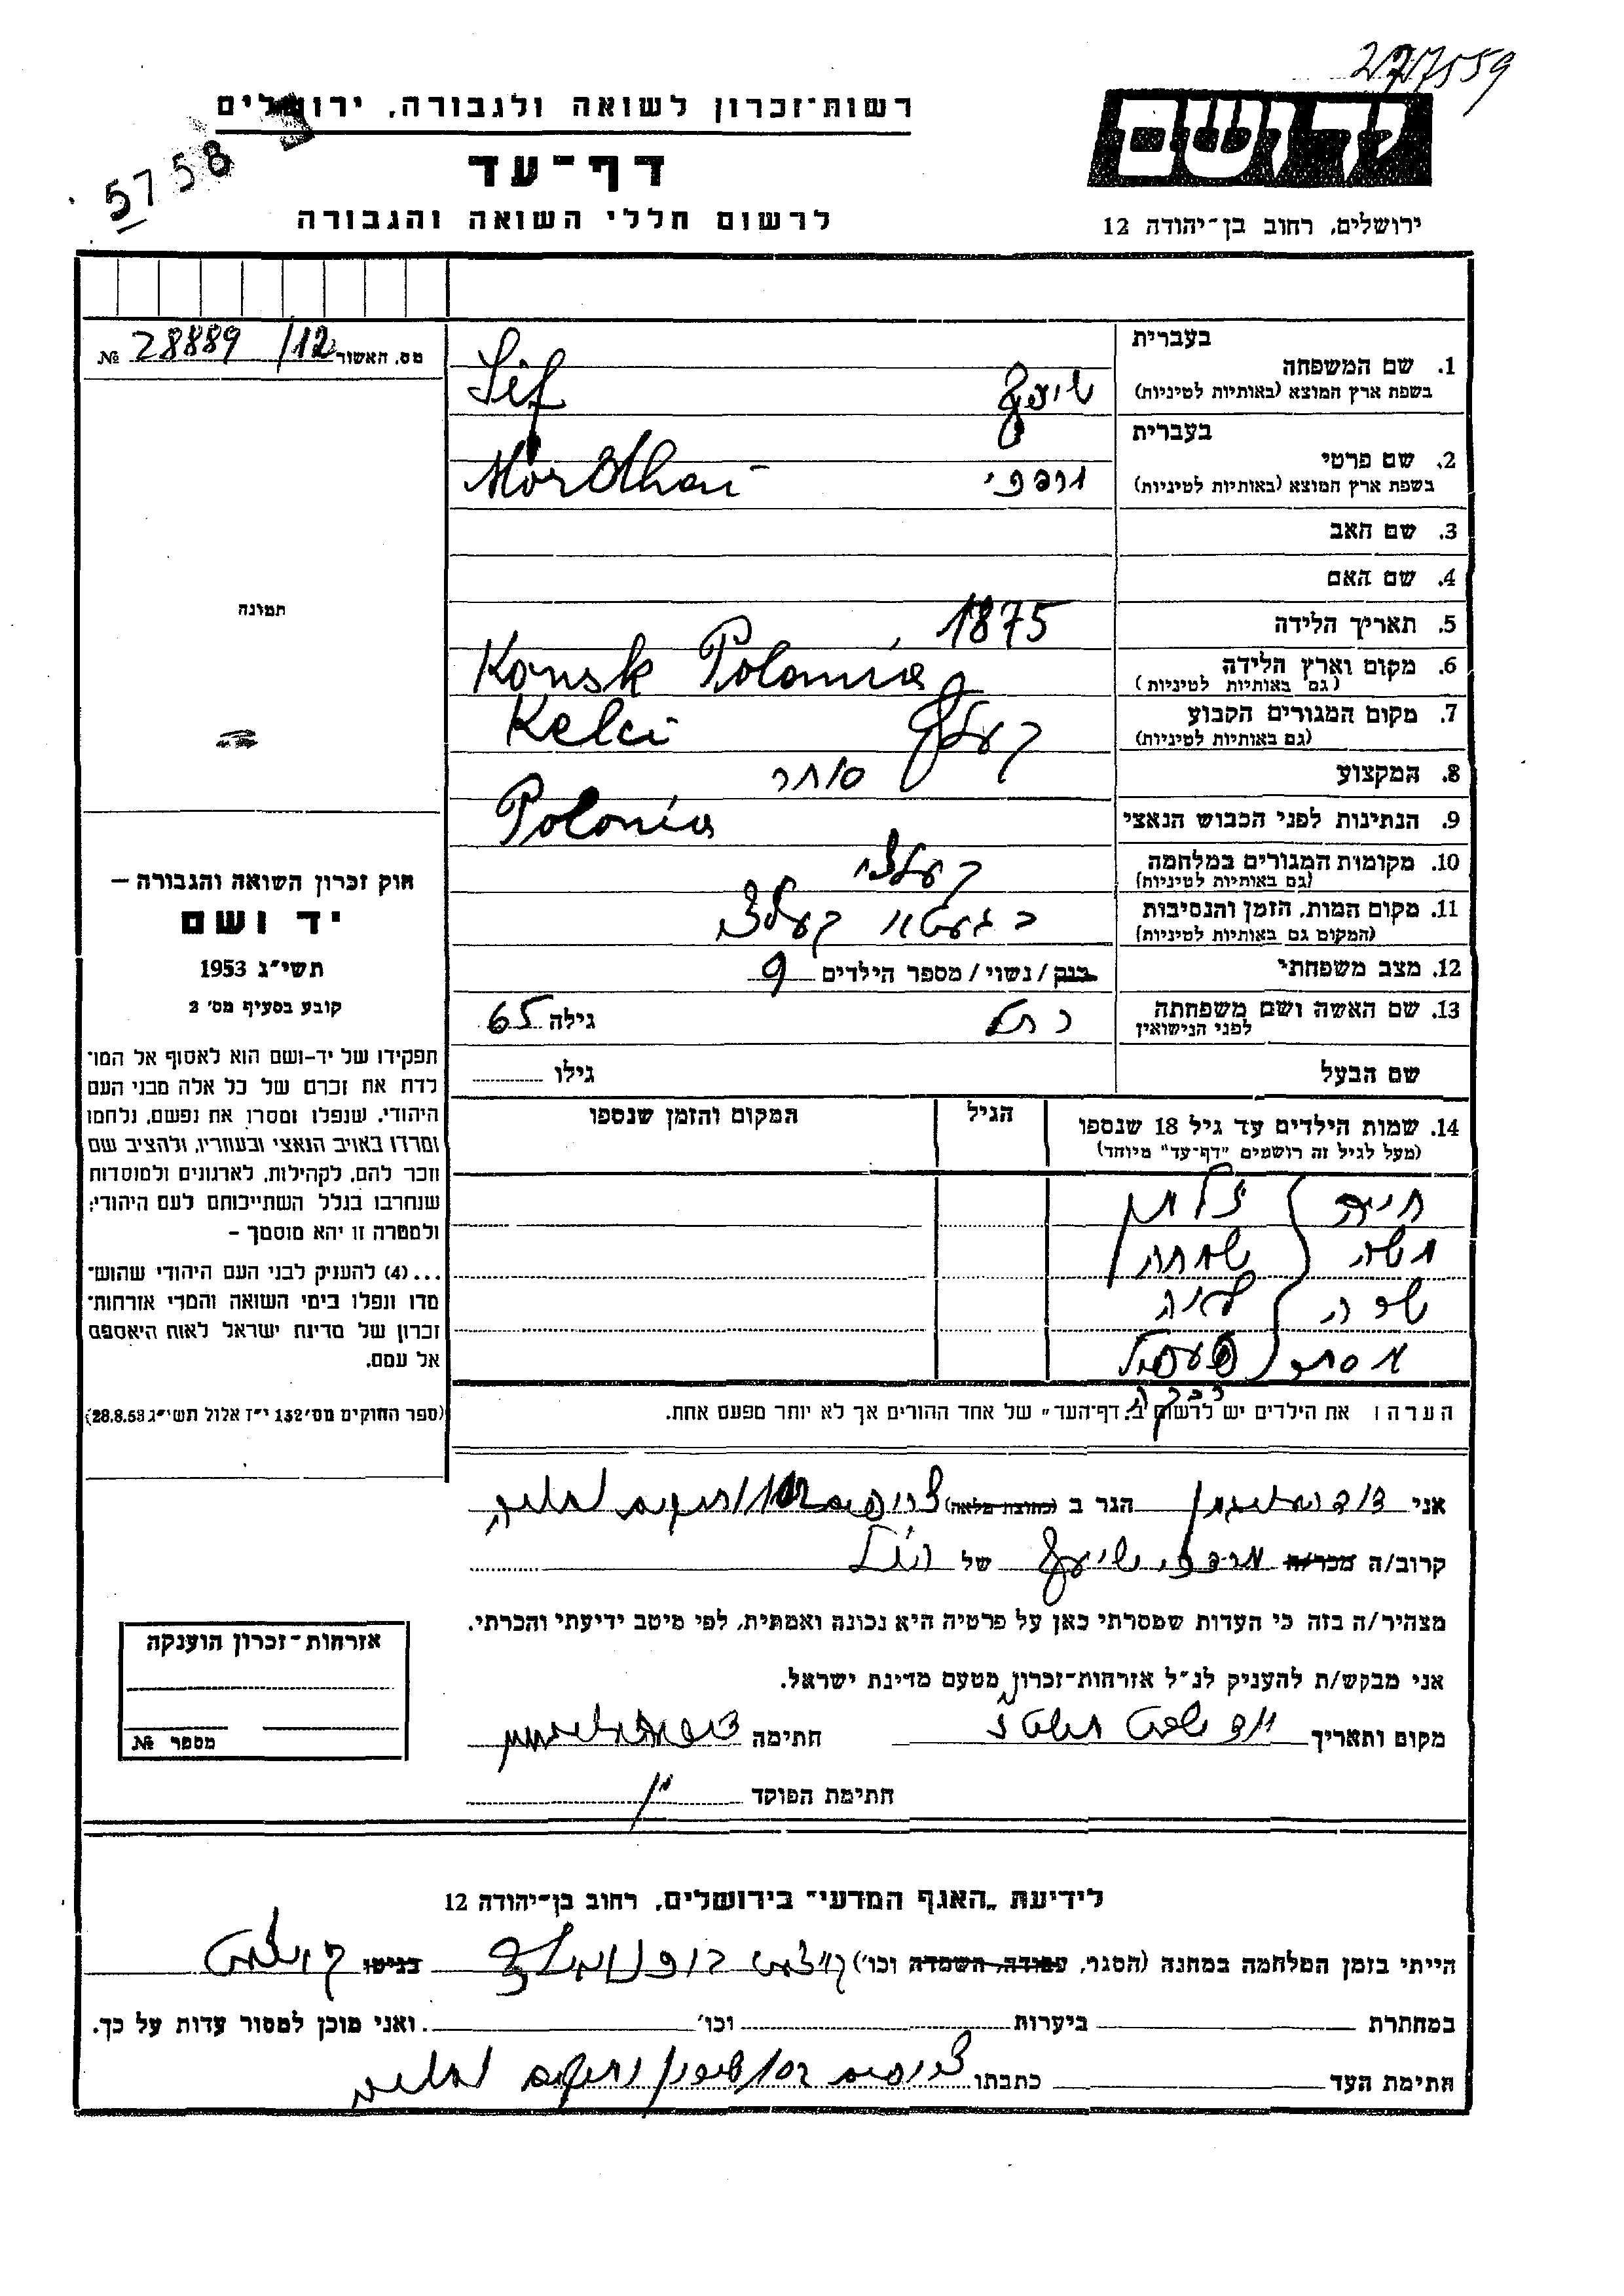 277559
רשות-זכרון לשואה ולגבורה, ירושלים
דף-עד
לרשום חללי השואה והגבורה
5758
יד ושם
ירושלים, רחוב בן-יהודה 12
מס. האשור 12/ 28889 №
תמונה
חוק זכרון השואה והגבורה –
יד ושם
תשי״ג 1953
קובע בסעיף מס׳ 2
תפקידו של יד-ושם הוא לאסוף אל המו־
לדת את זכרם של כל אלה מבני העם
היהודי, שנפלו ומסרו את נפשם, נלחמו
ומרדו באויב הנאצי ובעוזריו, ולהציב שם
וזכר להם, לקהילות, לארגונים ולמוסדות
שנחרבו בגלל השתייכותם לעם היהודי;
ולמטרה זו יהא מוסמך –
...(4) להעניק לבני העם היהודי שהוש־
מדו ונפלו בימי השואה והמרי אזרחות־
זכרון של מדינת ישראל לאות היאספם
אל עמם.
(ספר החוקים מס׳ 132 י״ז אלול תשי״ג 28.8.53)
בעברית
1. שם המשפחה
בשפת ארץ המוצא (באותיות לטיניות)
Sif
בעברית
2. שם פרטי
בשפת ארץ המוצא (באותיות לטיניות)
מרדכי
3. שם האב
4. שם האם
5. תאריך הלידה 1875
6. מקום וארץ הלידה
(גם באותיות לטיניות)
Konsk Polonia
7. מקום המגורים הקבוע
(גם באותיות לטיניות)
Kelci
8. המקצוע סוחר
9. הנתינות לפני הכבוש הנאצי Polonia
10. מקומות המגורים במלחמה קעלצי
(גם באותיות לטיניות)
11. מקום המות, הזמן והנסיבות
(המקום גם באותיות לטיניות)
בגעטא קעלצי
12. מצב משפחתי רווק / נשוי / מספר הילדים 9
13. שם האשה ושם משפחתה גילה 65
לפני הנישואין
שם הבעל גילו
14. שמות הילדים עד גיל 18 שנספו הגיל המקום והזמן שנספו
(מעל לגיל זה רושמים "דף-עד" מיוחד)
חיה זלמן
משה שמחה
שרה
אסתר
רבקה
הערה: את הילדים יש לרשום ב„דף-העד״ של אחד ההורים אך לא יותר מפעם אחת.
אני הגר ב (כתובת מלאה)
קרוב/ה מכר/ה מרדכי של
מצהיר/ה בזה כי העדות שמסרתי כאן על פרטיה היא נכונה ואמתית, לפי מיטב ידיעתי והכרתי.
אני מבקש/ת להעניק לנ״ל אזרחות-זכרון מטעם מדינת ישראל.
מקום ותאריך חתימה
חתימת הפוקד
אזרחות-זכרון הוענקה
מספר №
לידיעת „האגף המדעי״ בירושלים, רחוב בן-יהודה 12
הייתי בזמן המלחמה במחנה (הסגר, עבודה, השמדה וכו׳) בגיטו
במחתרת ביערות וכו׳ . ואני מוכן למסור עדות על כך.
חתימת העד כתבתו